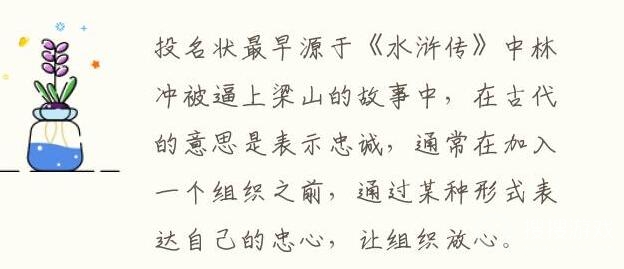 投名状最早源于《水浒传》中林
冲被逼上梁山的故事中，在古代
的意思是表示忠诚，通常在加入
一个组织之前，通过某种形式表
达自己的忠心，让组织放心。